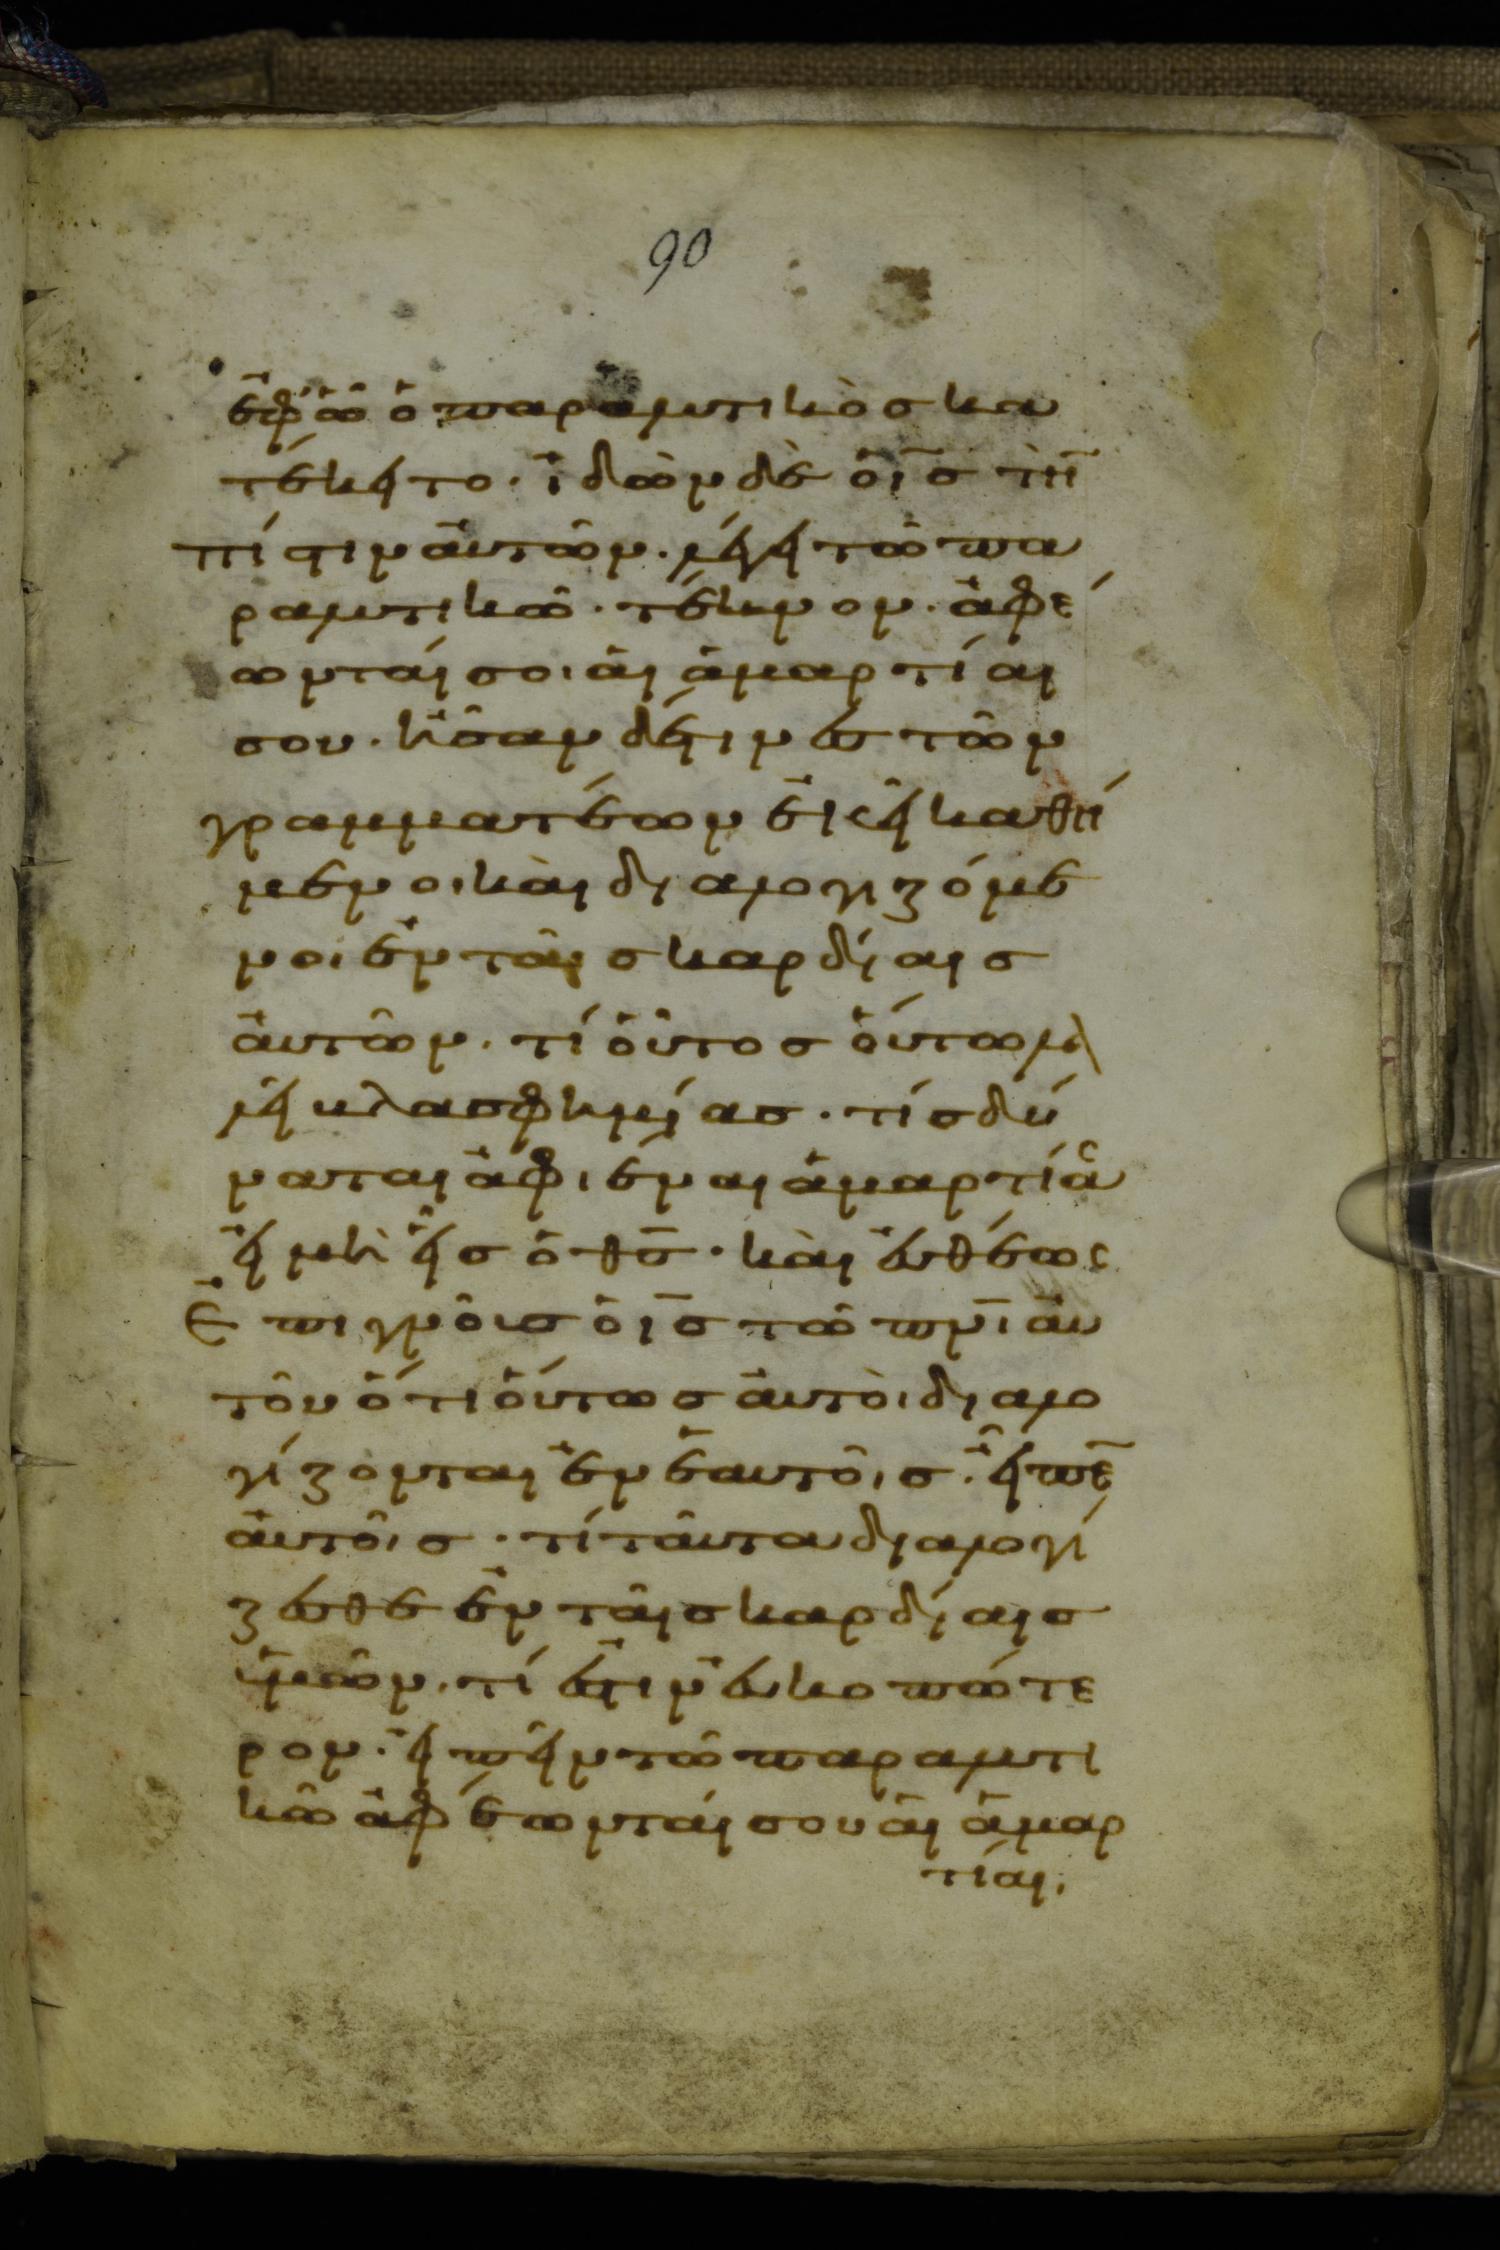 90
ἐφ' ᾧ ὁ παραλυτικὸσ κα
τέκειτο· ἰδὼν δὲ ὁ ισ τὴ
πίστιν ἀυτῶν· λέγει τῶ πα
ραλυτικῶ· τέκνον· ἀφέ
ωνταί σοι ἁι ἁμαρτίαι
σου· ἦσαν δέ τινεσ τῶν
γραμματέων ἐκεῖ καθή
μενοι κὰι διαλογιζόμε
νοι ἐν ταῖσ καρδίαισ
ἀυτῶν· τί ὁῦτοσ ὁύτω λα
λεῖ βλασφημίασ· τίσ δύ
ναται ἀφιέναι ἁμαρτίασ
ἐι μὴ ἐῖσ ὁ θσ· κὰι ἐυθέωσ
Ἐπιγνοὺσ ὁ ισ τῶ πνι ἀυ
τοῦ ὅτι ὁύτωσ ἀυτὸι διαλο
γίζονται ἐν ἑαυτοῖσ· εἶπε
ἀυτοῖσ· τί ταῦτα διαλογί
ζεσθε ἐν ταῖσ καρδίαισ
ὑμῶν· τί ἐστιν ἐυκοπώτε
ρον· ἐιπεῖν τῶ παραλυτι
κῶ ἀφέωνταί σου ἁι ἁμαρ
τίαι;